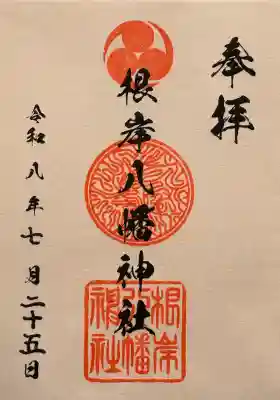 奉拝
根岸八幡神社
令和八年七月二十五日
根岸
八幡
神社